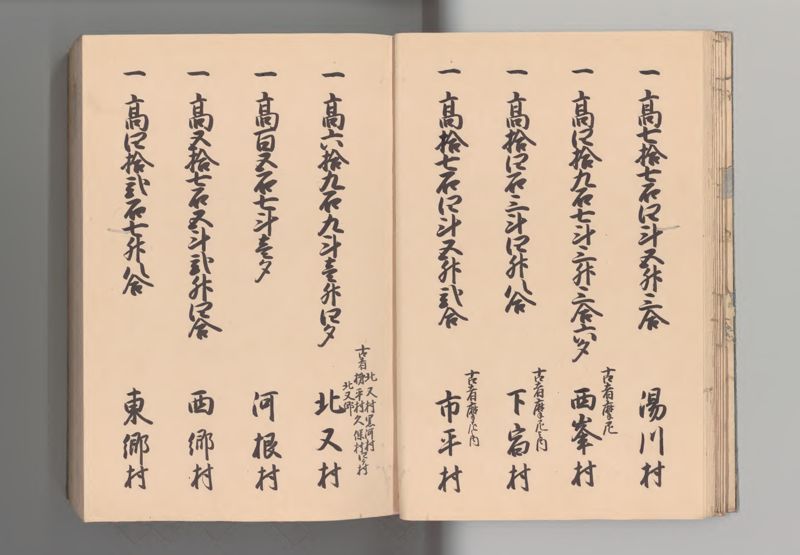 一高七拾七石四斗五升三合 湯川村
古者摩尼
一高四拾九石七斗三升三合六夕 西峯村
古者摩尼内
一高拾四石三斗四升八合 下宿村
古者摩尼内
一高拾七石四斗五升弐合 市平村
古者 北又村黒河村
平村久保村
北又郷
一高六拾九石九斗壱升四夕 北又村
一高百五石七斗壱夕 河根村
一高五拾七石五斗弐升四合 西郷村
一高四拾弐石七升八合 東郷村